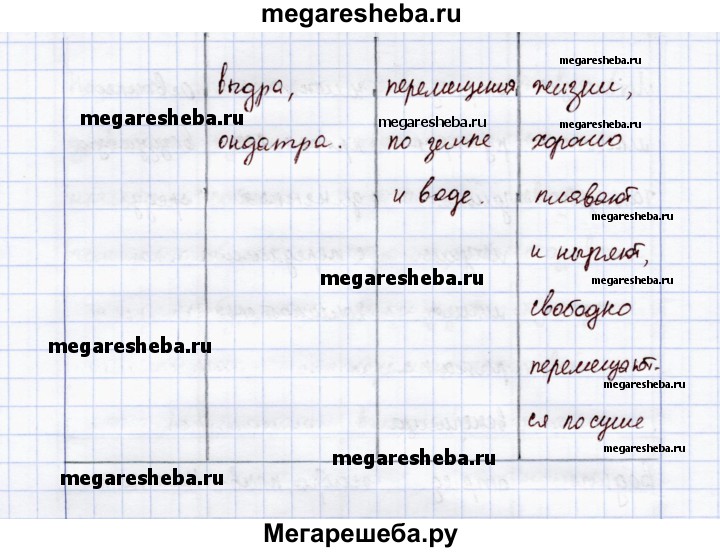 megaresheba.ru
выдра, перемещения жизни,
megaresheba.ru
megaresheba.ru
megaresheba.ru
megaresheba.ru
ондатра. по земле хорошо
и воде. плавают
megaresheba.ru
и ныряют,
megaresheba.ru
megaresheba.ru
свободно
megaresheba.ru
перемещают-
megaresheba.ru
ся по суше
megaresheba.ru
megaresheba.ru
megaresheba.ru
Мегарешеба.ру